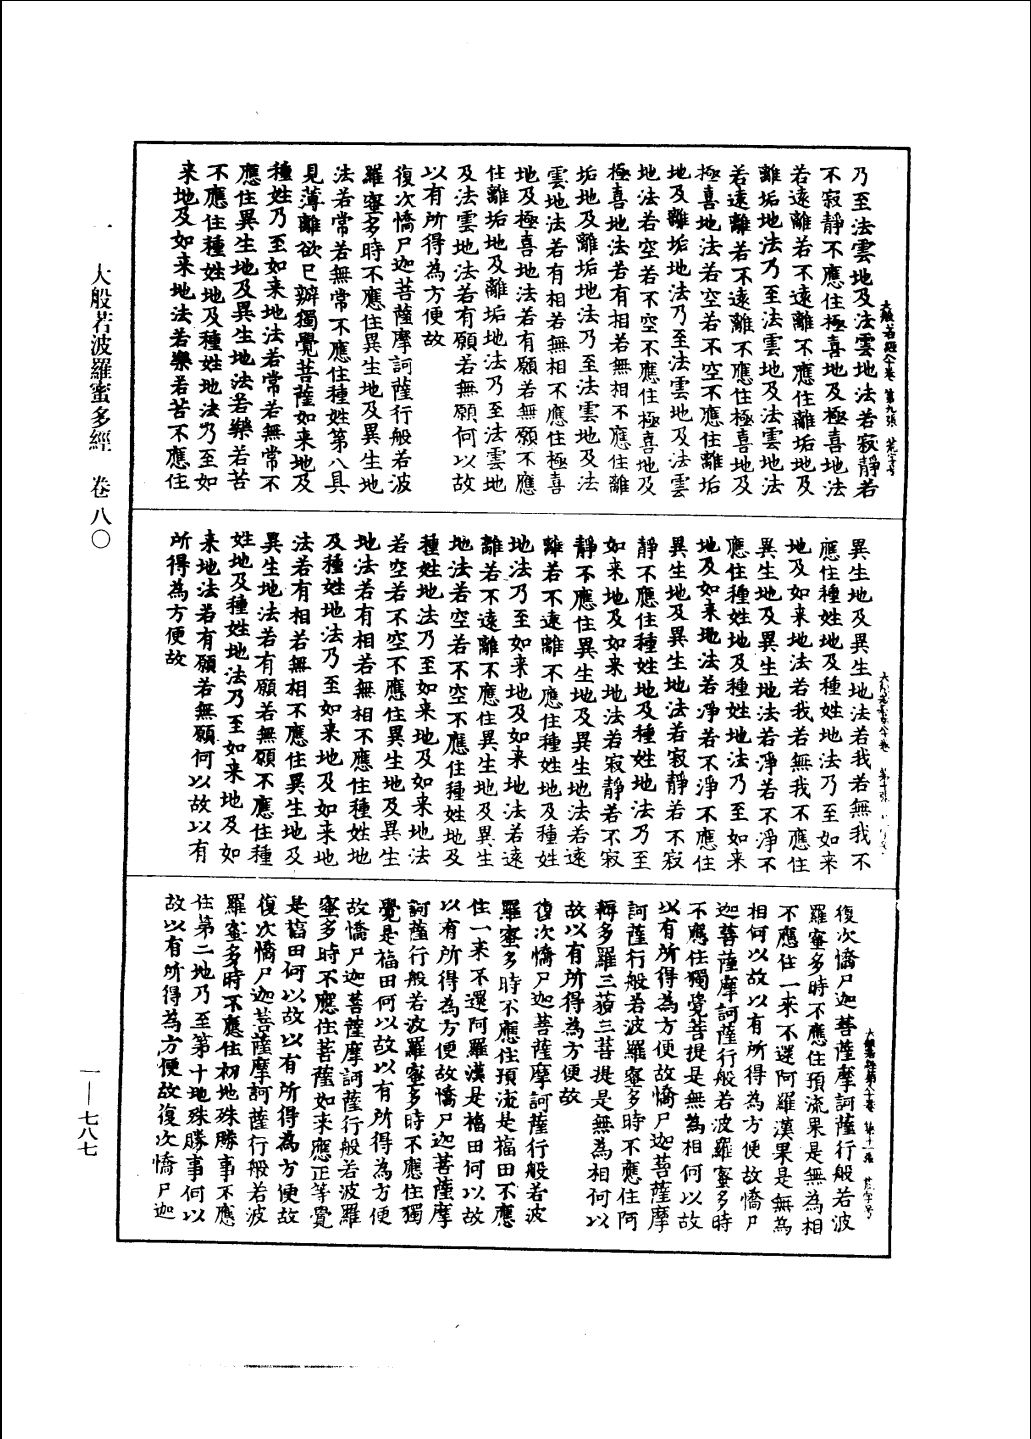 大般若經八十卷 第九張 荒字号
乃至法雲地及法雲地法若寂靜若
不寂靜不應住極喜地及極喜地法
若遠離若不遠離不應住離垢地及
離垢地法乃至法雲地及法雲地法
若遠離若不遠離不應住極喜地及
極喜地法若空若不空不應住離垢
地及離垢地法乃至法雲地及法雲
地法若空若不空不應住極喜地及
極喜地法若有相若無相不應住離
垢地及離垢地法乃至法雲地及法
雲地法若有相若無相不應住極喜
地及極喜地法若有願若無願不應
住離垢地及離垢地法乃至法雲地
及法雲地法若有願若無願何以故
以有所得為方便故
復次憍尸迦菩薩摩訶薩行般若波
羅蜜多時不應住異生地及異生地
法若常若無常不應住種姓第八具
見薄離欲已辦獨覺菩薩如来地及
種姓乃至如来地法若常若無常不
應住異生地及異生地法若樂若苦
不應住種姓地及種姓地法乃至如
来地及如来地法若樂若苦不應住
異生地及異生地法若我若無我不
應住種姓地及種姓地法乃至如来
地及如来地法若我若無我不應住
異生地及異生地法若淨若不淨不
應住種姓地及種姓地法乃至如来
地及如来地法若淨若不淨不應住
異生地及異生地法若寂靜若不寂
靜不應住種姓地及種姓地法乃至
如来地及如来地法若寂靜若不寂
靜不應住異生地及異生地法若遠
離若不遠離不應住種姓地及種姓
地法乃至如来地及如来地法若遠
離若不遠離不應住異生地及異生
地法若空若不空不應住種姓地及
種姓地法乃至如来地及如来地法
若空若不空不應住異生地及異生
地法若有相若無相不應住種姓地
及種姓地法乃至如来地及如来地
法若有相若無相不應住異生地及
異生地法若有願若無願不應住種
姓地及種姓地法乃至如来地及如
来地法若有願若無願何以故以有
所得為方便故
大般若經第八十卷 第十一張 荒字号
復次憍尸迦菩薩摩訶薩行般若波
羅蜜多時不應住預流果是無為相
不應住一来不還阿羅漢果是無為
相何以故以有所得為方便故憍尸
迦菩薩摩訶薩行般若波羅蜜多時
不應住獨覺菩提是無為相何以故
以有所得為方便故憍尸迦菩薩摩
訶薩行般若波羅蜜多時不應住阿
耨多羅三藐三菩提是無為相何以
故以有所得為方便故
復次憍尸迦菩薩摩訶薩行般若波
羅蜜多時不應住預流是福田不應
住一来不還阿羅漢是福田何以故
以有所得為方便故憍尸迦菩薩摩
訶薩行般若波羅蜜多時不應住獨
覺是福田何以故以有所得為方便
故憍尸迦菩薩摩訶薩行般若波羅
蜜多時不應住菩薩如来應正等覺
是福田何以故以有所得為方便故
復次憍尸迦菩薩摩訶薩行般若波
羅蜜多時不應住初地殊勝事不應
住第二地乃至第十地殊勝事何以
故以有所得為方便故復次憍尸迦
一 大般若波羅蜜多經 卷八〇
一—七八七